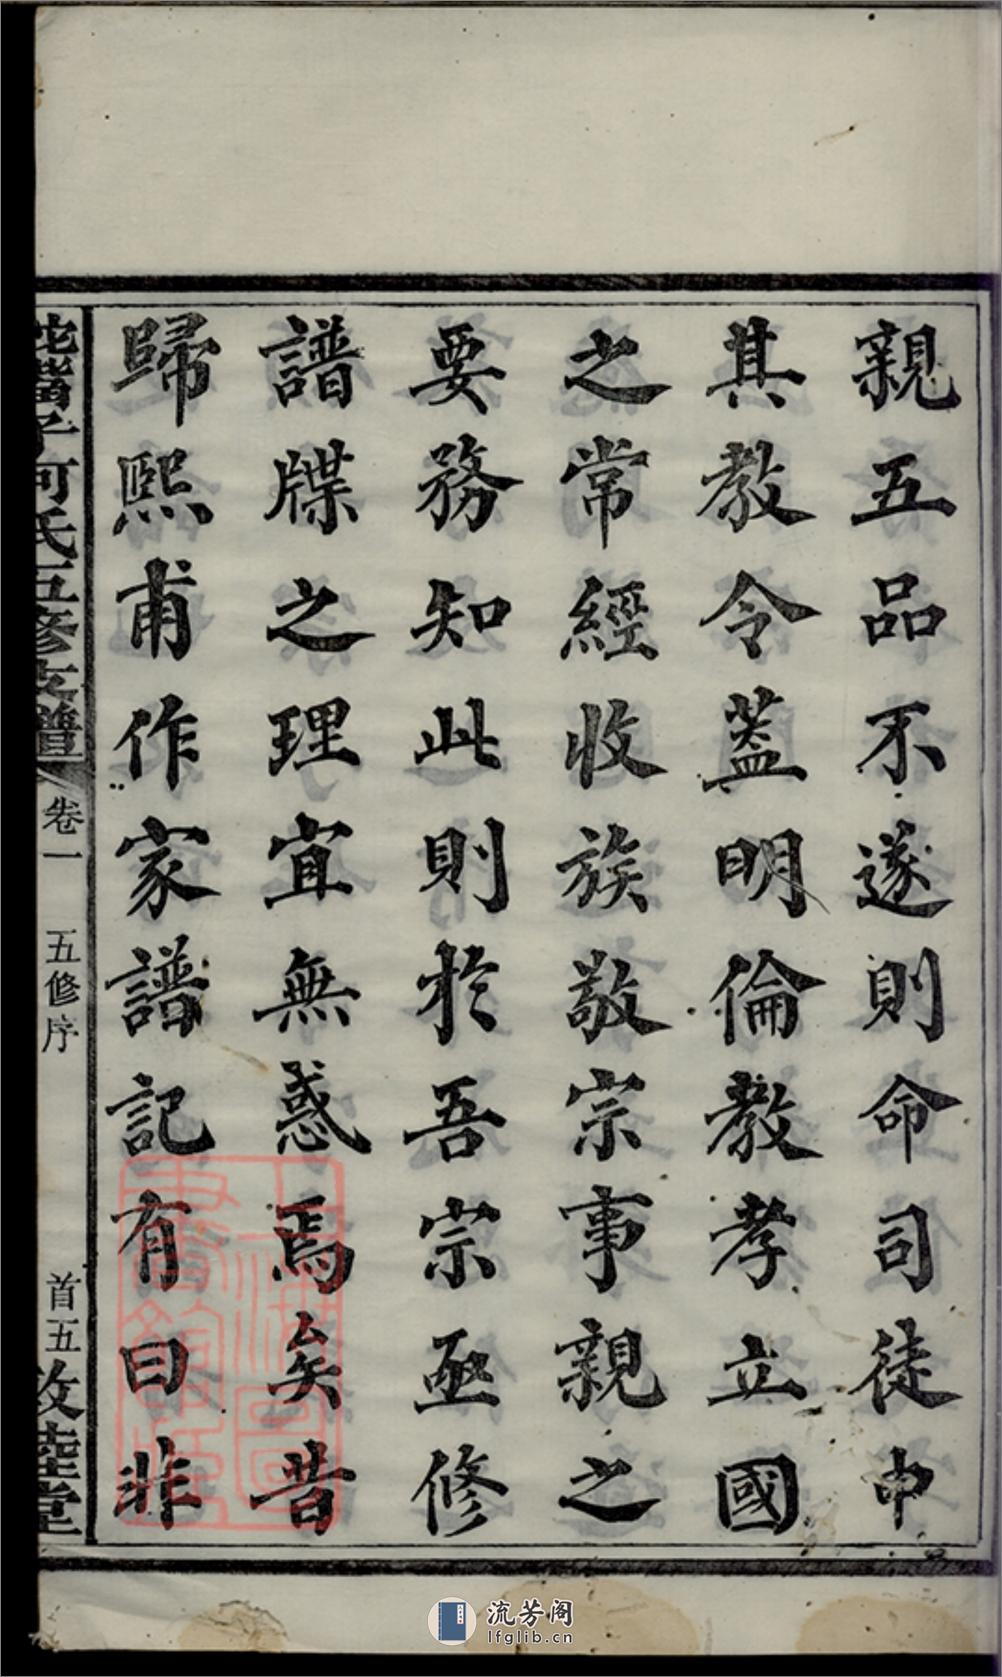 親五品不遂則命司徒申
其教令蓋明倫教孝立國
之常經收族敬宗事親之
要務知此則於吾宗亟修
譜牒之理宜無惑焉矣昔
歸熙甫作家譜記有曰非
何氏五修支譜
卷一
五修序
首五
敦睦堂
上海圖書館藏
流芳阁
lfglib.cn